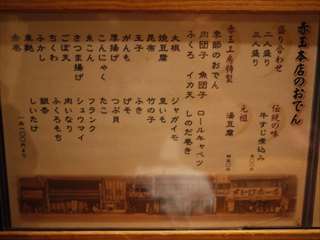 赤玉本店のおでん
盛り合わせ
二人盛り
三人盛り
伝統の味
牛すじ煮込み
元祖
湯豆腐
赤玉工房特製
季節のおでん
肉団子
魚団子
ロールキャベツ
ふくろ
イカ天
しのだ巻き
大根
ジャガイモ
焼豆腐
里いも
玉子
竹の子
昆布
ふき
がんも
げそ
厚揚げ
つぶ貝
こんにゃく
たこ
糸こん
フランク
さつま揚げ
シュウマイ
ごぼ天
肉いなり
ちくわ
ふくろもち
ふかし
銀杏
車麩
しいたけ